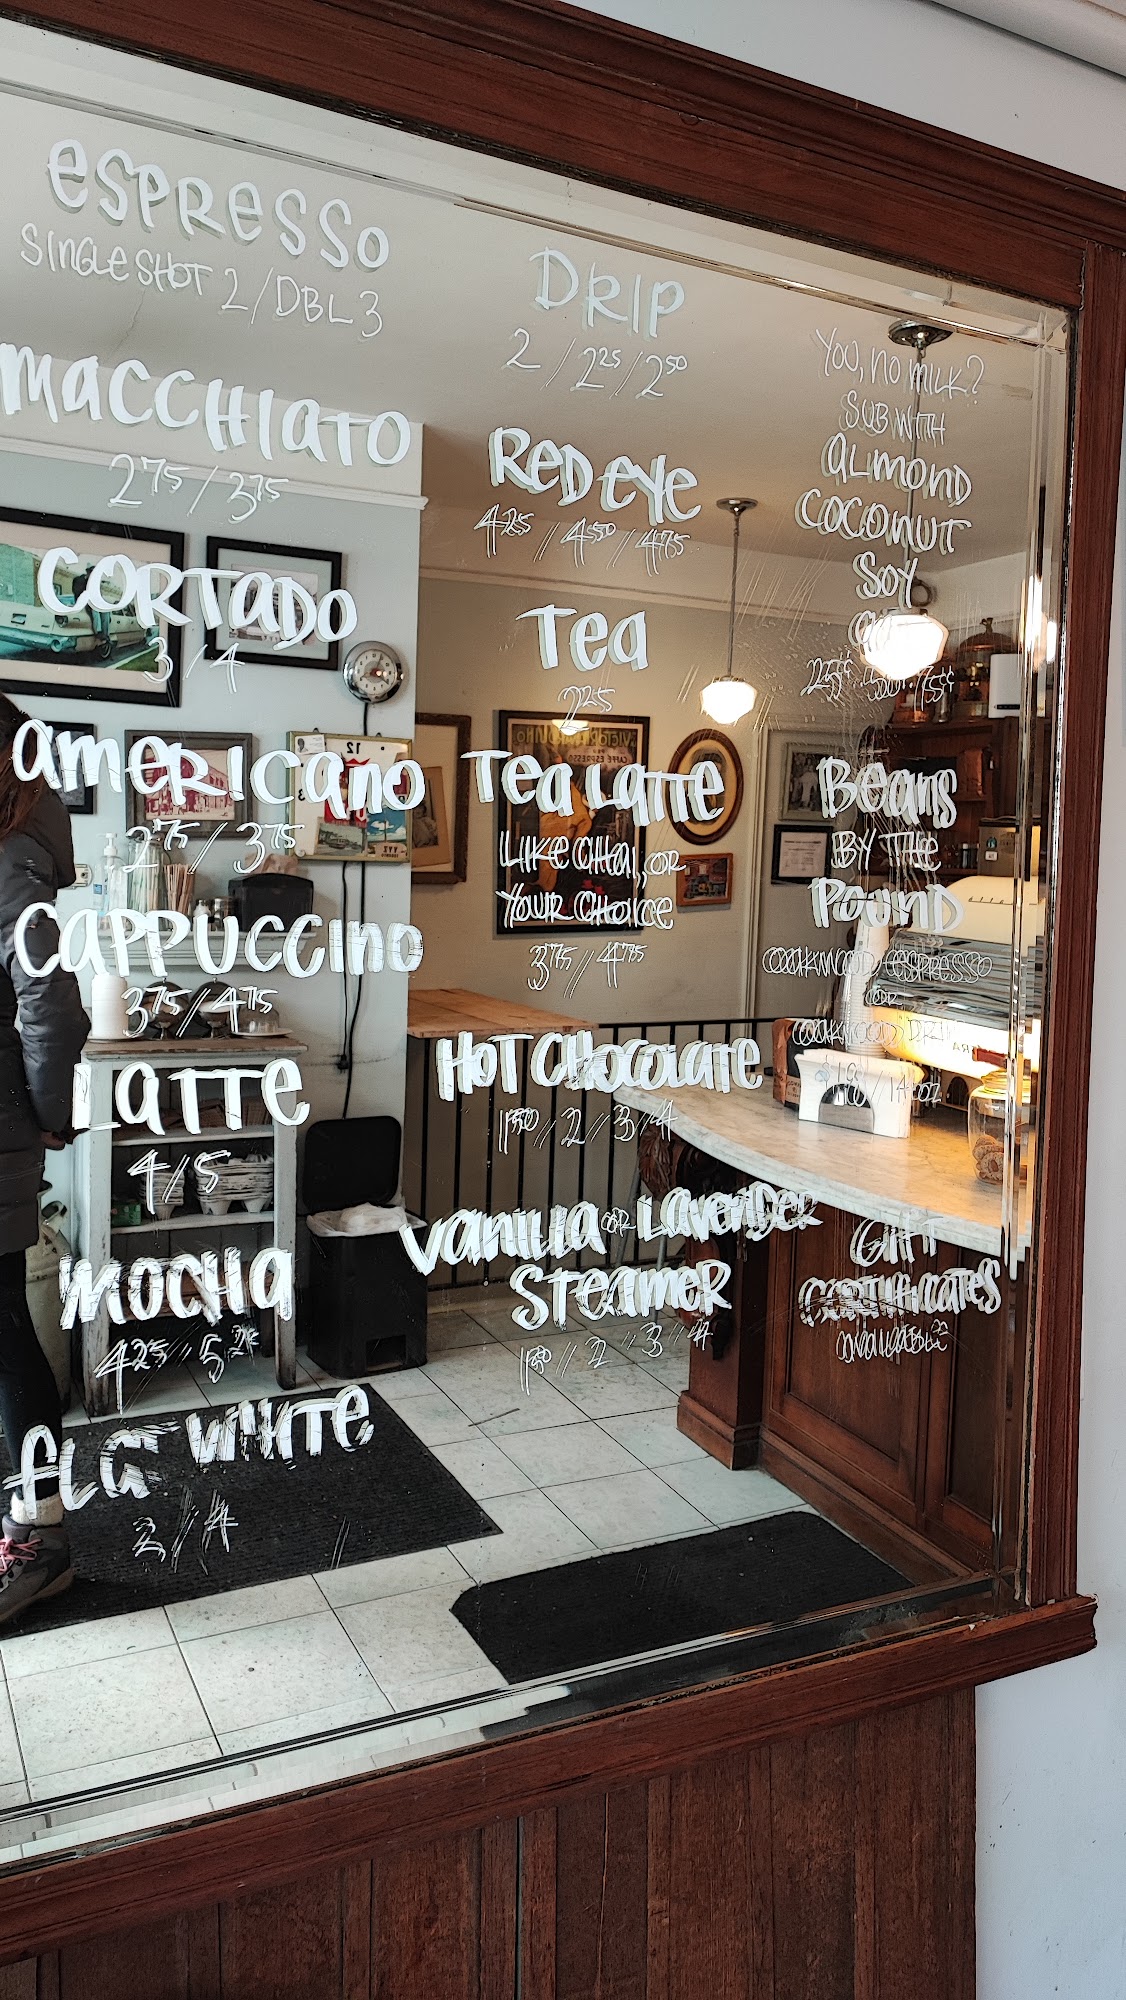 espresso
Single shot 2 / DBL 3
macchiato
2 75 / 3 75
cortado
3 / 4
americano
2 75 / 3 75
cappuccino
3 75 / 4 75
Latte
4 / 5
mocha
4 25 / 5 25
White
2 / 4
DRIP
2 / 2 25 / 2 50
Red eye
4 25 / 4 50 / 4 75
Tea
2 25
Tea Latte
Like chai, or
your choice
3 75 / 4 75
Hot chocolate
1 50 / 2 / 3 / 4
Vanilla or Lavender
Steamer
1 50 / 2 / 3 / 4
You, no milk?
Sub with
almond
coconut
soy
Beans
By the
Pound
espresso
or
Gift
certificates
12